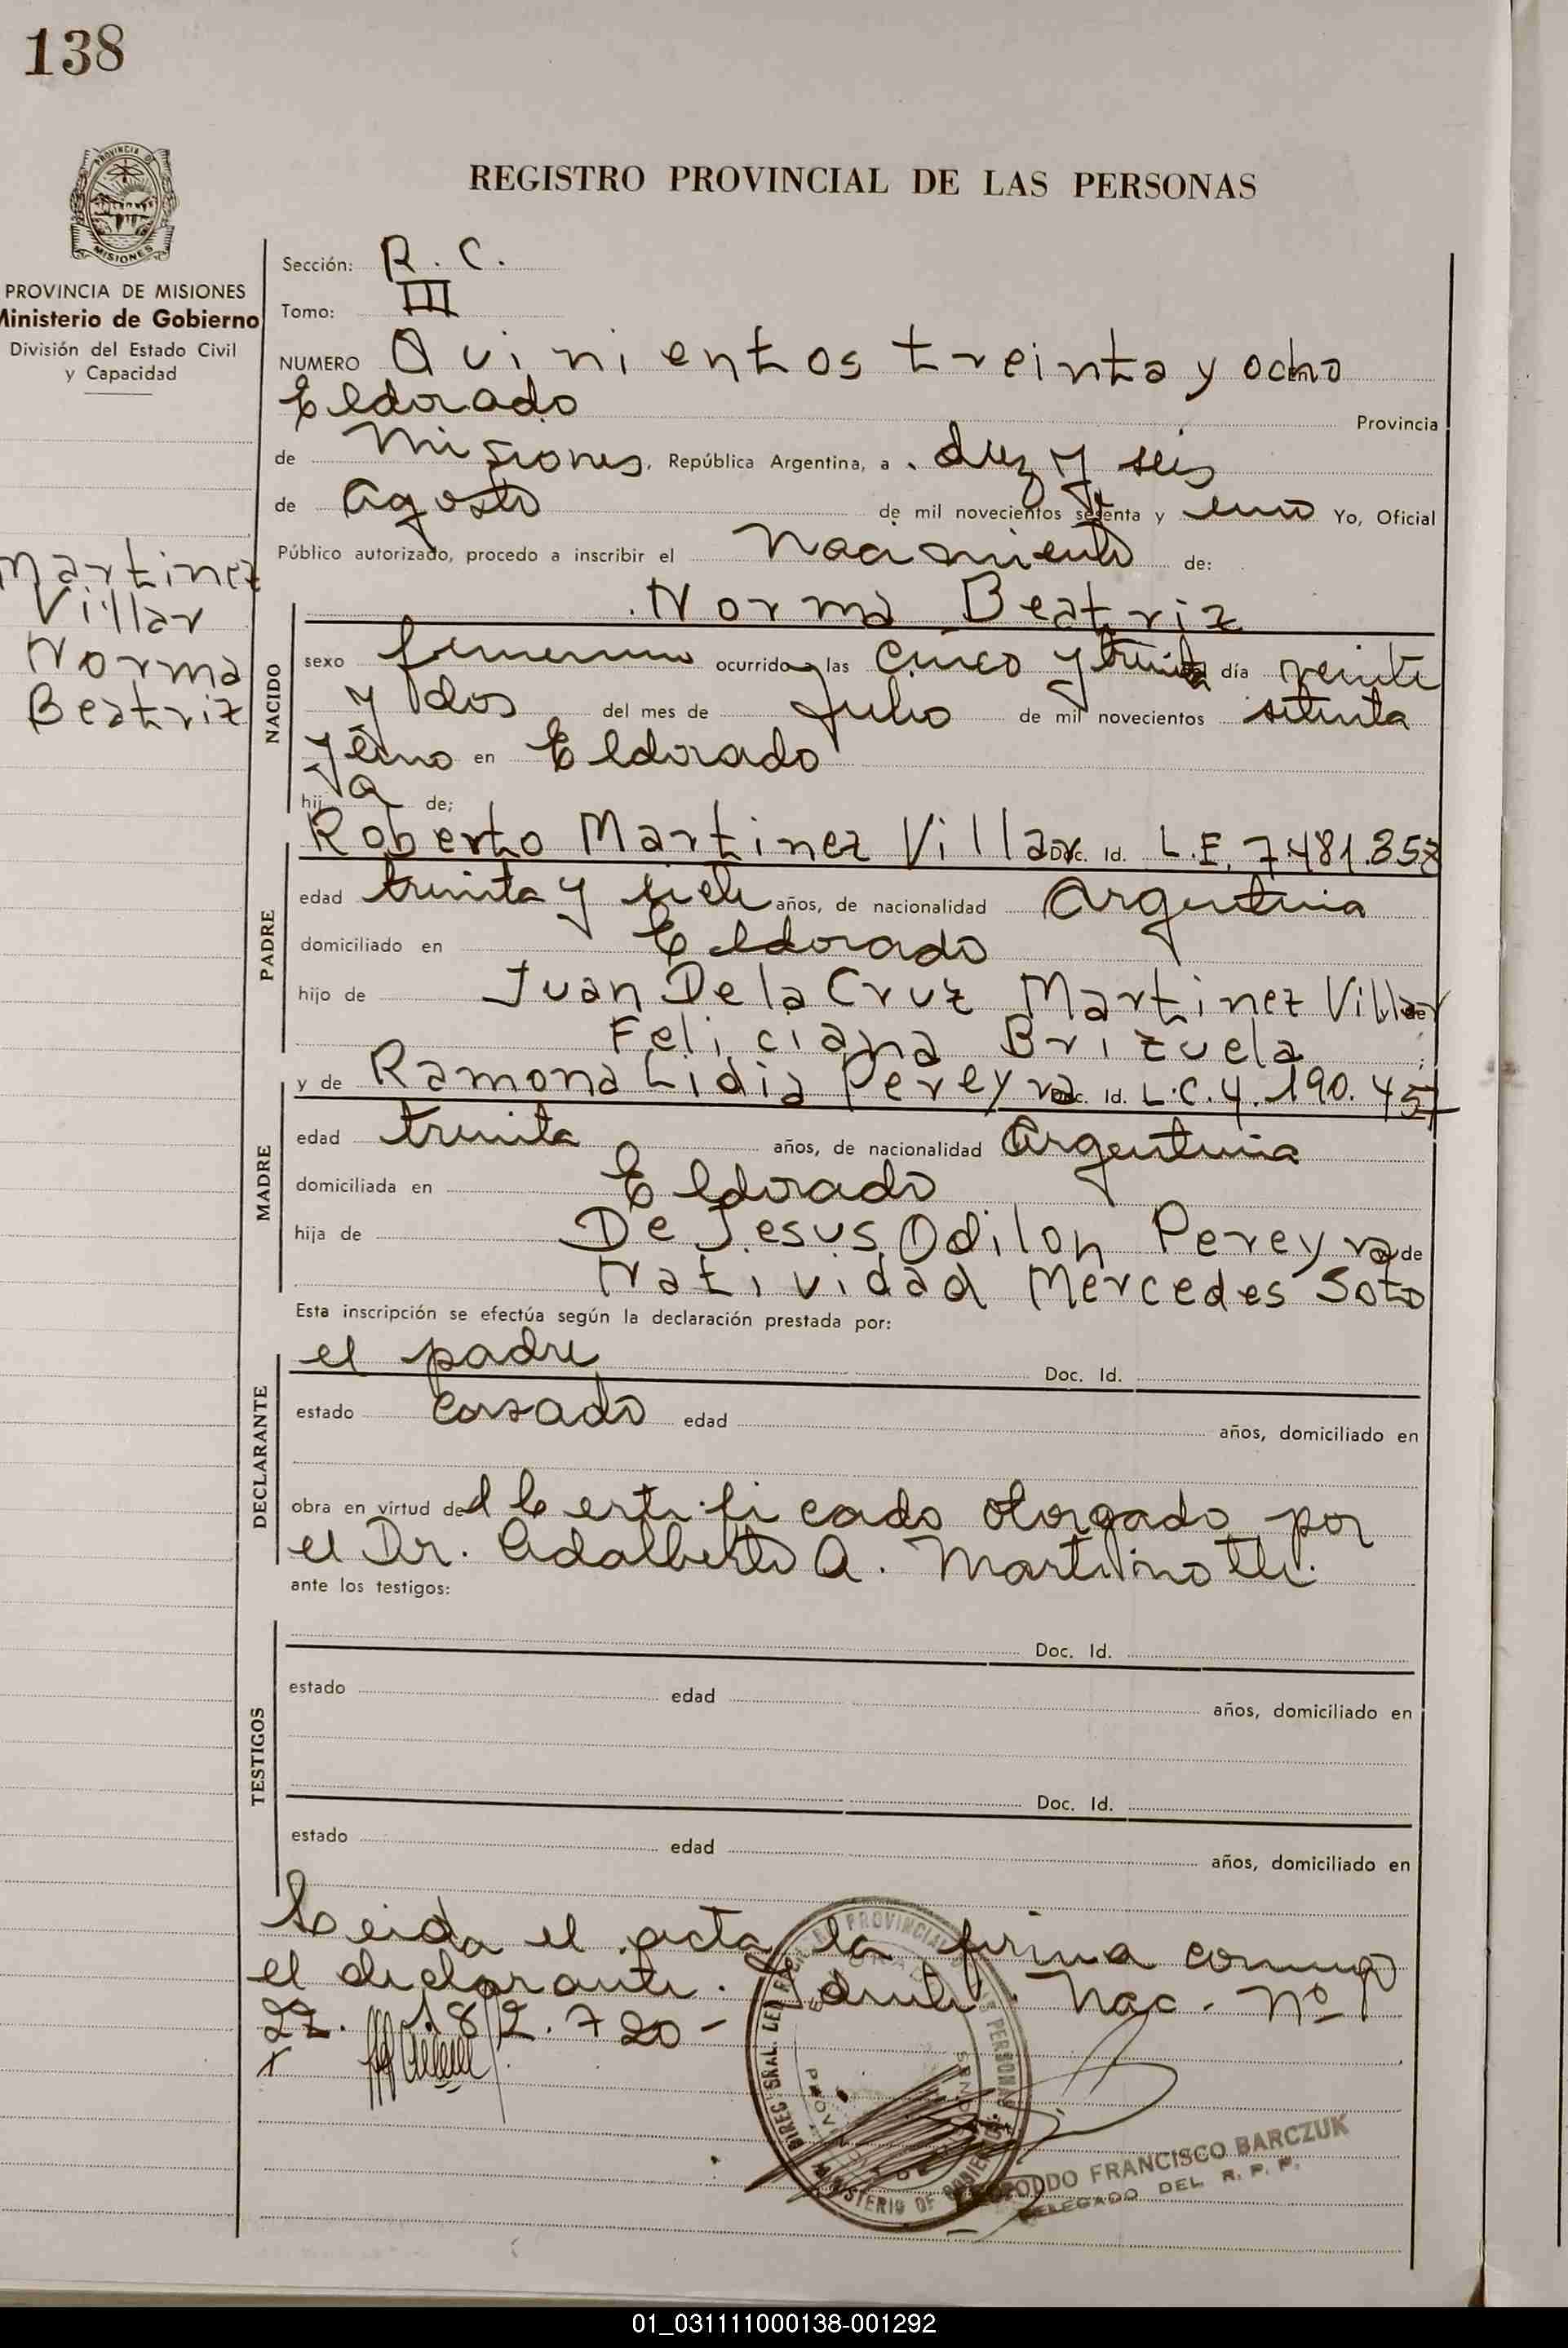 138
PROVINCIA DE
MISIONES
PROVINCIA DE MISIONES
Ministerio de Gobierno
División del Estado Civil
y Capacidad
Martinez
Villar
Norma
Beatriz
REGISTRO PROVINCIAL DE LAS PERSONAS
Sección: R. C.
Tomo: III
NUMERO Quinientos treinta y ocho
Eldorado Provincia
de Misiones, República Argentina, a diez y seis
de Agosto de mil novecientos setenta y uno Yo, Oficial
Público autorizado, procedo a inscribir el Nacimiento de:
Norma Beatriz
NACIDO
sexo femenino ocurrido a las cinco y treinta día veinte
y dos del mes de Julio de mil novecientos setenta
y uno en Eldorado
hija de;
PADRE
Roberto Martinez Villar Doc. Id. L.E. 7.481.358
edad treinta y siete años, de nacionalidad Argentina
domiciliado en Eldorado
hijo de Juan De la Cruz Martinez Villar de
Feliciana Brizuela ;
MADRE
y de Ramona Lidia Pereyra Doc. Id. L.C. 4.190.457
edad treinta años, de nacionalidad Argentina
domiciliada en Eldorado
hija de De Jesus Odilon Pereyra de
Natividad Mercedes Soto
Esta inscripción se efectúa según la declaración prestada por:
DECLARANTE
el padre Doc. Id.
estado casado edad años, domiciliado en
obra en virtud del Certificado otorgado por
el Dr. Adalberto A. Martinotti.
ante los testigos:
TESTIGOS
Doc. Id.
estado edad años, domiciliado en
Doc. Id.
estado edad años, domiciliado en
Leida el acta, la firma conmigo
el declarante. Ident. Nac. Nº
22. 182.720-
FRANCISCO BARCZUK
DELEGADO DEL R. P. P.
01_031111000138-001292